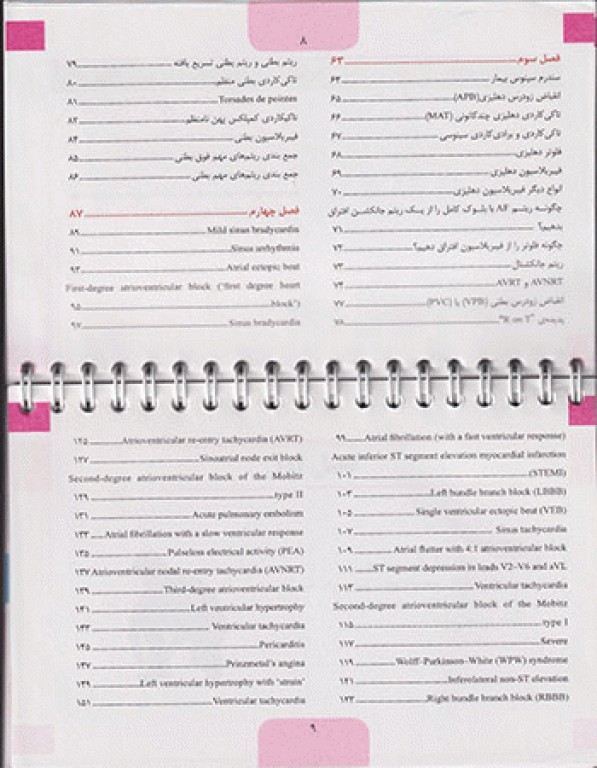 ۸
فصل سوم ۶۳
سندرم سینوس بیمار ۶۴
انقباض زودرس دهلیزی (APB) ۶۵
تاکی‌کاردی دهلیزی چندکانونی (MAT) ۶۶
تاکی‌کاردی و برادی‌کاردی سینوسی ۶۷
فلوتر دهلیزی ۶۸
فیبریلاسیون دهلیزی ۶۹
انواع دیگر فیبریلاسیون دهلیزی ۷۰
چگونه ریتم AF با بلوک کامل را از یک ریتم جانکشن افتراق
بدهیم؟ ۷۱
چگونه فلوتر را از فیبریلاسیون افتراق دهیم؟ ۷۲
ریتم جانکشنال ۷۳
AVNRT و AVRT ۷۴
انقباض زودرس بطنی (VPB) یا (PVC) ۷۷
پدیده‌ی "R on T" ۷۸
ریتم بطنی و ریتم بطنی تسریع یافته ۷۹
تاکی‌کاردی بطنی منظم ۸۰
Torsades de pointes ۸۱
تاکیکاردی کمپلکس پهن نامنظم ۸۲
فیبریلاسیون بطنی ۸۴
جمع بندی ریتم‌های مهم فوق بطنی ۸۵
جمع بندی ریتم‌های مهم بطنی ۸۶
فصل چهارم ۸۷
Mild sinus bradycardia ۸۹
Sinus arrhythmia ۹۱
Atrial ectopic beat ۹۳
First-degree atrioventricular block ('first degree heart
block') ۹۵
Sinus bradycardia ۹۷
Atrial fibrillation (with a fast ventricular response) ۹۹
Acute inferior ST segment elevation myocardial infarction
(STEMI) ۱۰۱
Left bundle branch block (LBBB) ۱۰۳
Single ventricular ectopic beat (VEB) ۱۰۵
Sinus tachycardia ۱۰۷
Atrial flutter with 4:1 atrioventricular block ۱۰۹
ST segment depression in leads V2-V6 and aVL ۱۱۱
Ventricular tachycardia ۱۱۳
Second-degree atrioventricular block of the Mobitz
type I ۱۱۵
Severe ۱۱۷
Wolff-Parkinson-White (WPW) syndrome ۱۱۹
Inferolateral non-ST elevation ۱۲۱
Right bundle branch block (RBBB) ۱۲۳
Atrioventricular re-entry tachycardia (AVRT) ۱۲۵
Sinoatrial node exit block ۱۲۷
Second-degree atrioventricular block of the Mobitz
type II ۱۲۹
Acute pulmonary embolism ۱۳۱
Atrial fibrillation with a slow ventricular response ۱۳۳
Pulseless electrical activity (PEA) ۱۳۵
Atrioventricular nodal re-entry tachycardia (AVNRT) ۱۳۷
Third-degree atrioventricular block ۱۳۹
Left ventricular hypertrophy ۱۴۱
Ventricular tachycardia ۱۴۳
Pericarditis ۱۴۵
Prinzmetal's angina ۱۴۷
Left ventricular hypertrophy with 'strain' ۱۴۹
Ventricular tachycardia ۱۵۱
۹